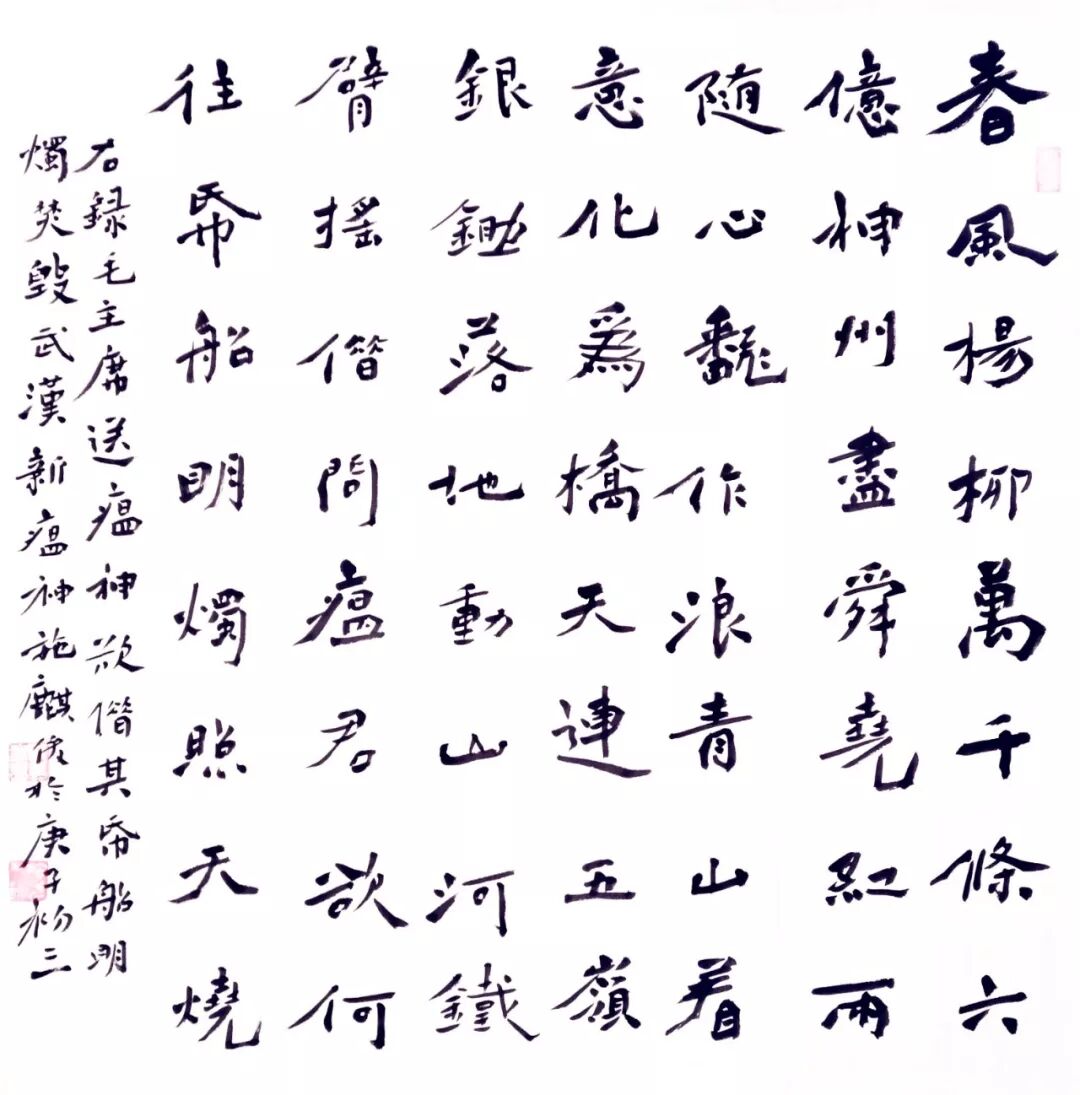 春風楊柳萬千條六
億神州盡舜堯紅雨
随心飜作浪青山着
意化爲橋天連五嶺
銀鋤落地動山河鐵
臂搖借問瘟君欲何
往帋船明燭照天燒
右録毛主席送瘟神欲借其帋船明
燭焚毀武漢新瘟神施麒俊於庚子初三